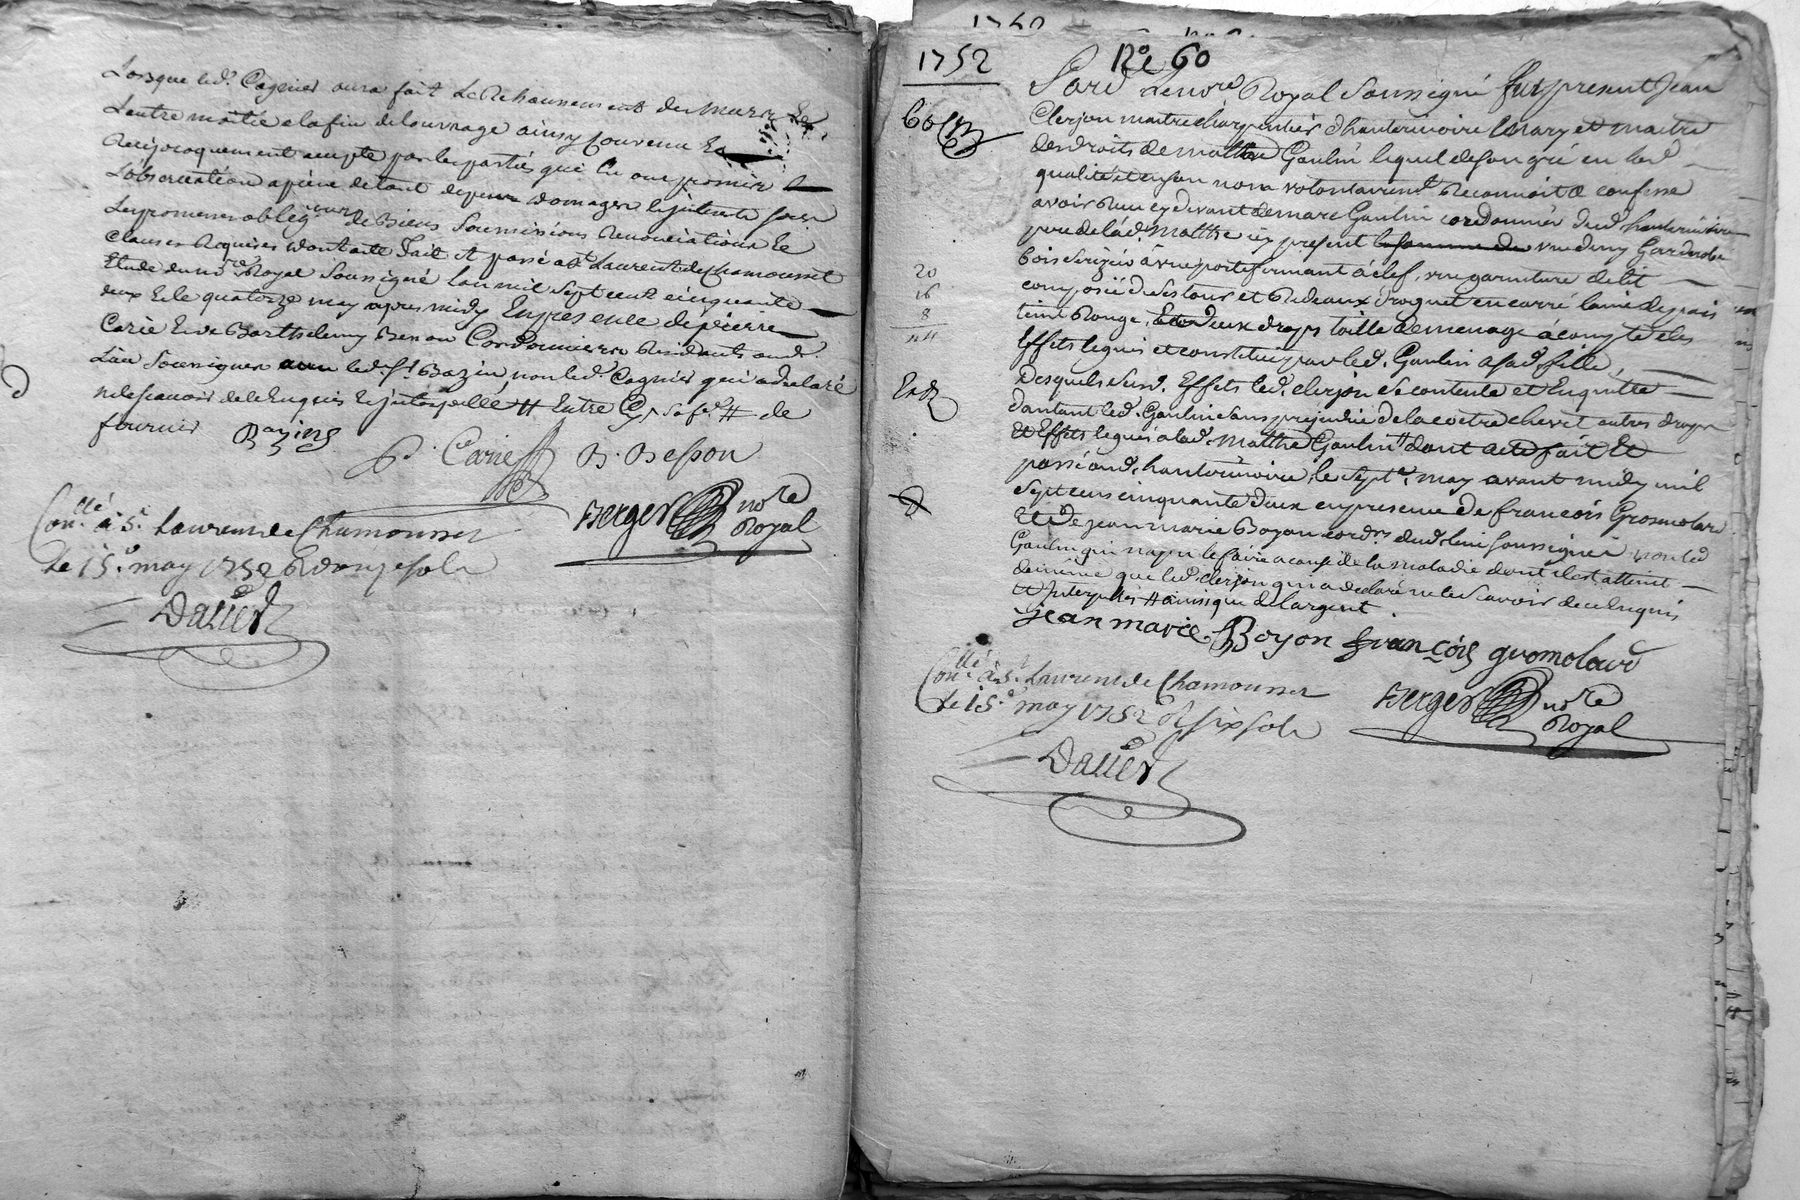 Lorsque led. Cagnier aura fait Le Rehaussement des Murs Et
Lautre moitié a la fin de louvrage ainsy Convenu Et
Reciproquement accepté par les parties qui En ont promis
L'observation a peine de tout depens domages
Les promesses oblig. de Biens Soumissions Renonciations Et
Clauses Requises dont acte Fait et passé a St Laurent de Chamousset
Etude du no.re Royal Soussigné lan mil Sept cent cinquante
deux Et le quatorze may apres midy En presence de pierre
Carié Et de Barthelemy Besson Cordonniers Residants aud.
Lieu Soussignés avec led. Sr Bazin, non led. Cagnier qui a declaré
ne le scavoir de ce Enquis
fournir Bazin
P. Carié B. Besson
Con.llé à St. Laurent de Chamousset Berger no.re
Royal
Le 15e. may 1752 R douze sols
Dalier
1752 N° 60
60
Pard. Le no.re Royal Soussigné fut present Jean
Clerjon maitre charpentier d'hauterivoire Mary et maitre
des droits de matthie Gaulin lequel de son gré en lad.
qualité et en son nom volontairem.t Reconnoit & confesse
avoir Receu cy devant de marc Gaulin cordonnier dud. hauterivoire
pere de lad. Matthie icy present la somme de une
bois Serizier à une porte fermant à clef, une garniture de lit
composée du Rideaux droguet en carré laine de pais
teint Rouge, Et deux draps toille de menage a compte des
Effets legués et constitués par led. Gaulin a sad. fille,
Desquels Susd. Effets led. clerjon Se contente et Enquitte
dautant led. Gaulin sans prejudice de la coitre chevet autres draps
Et Effets legués a lad. Matthie Gaulin dont acte fait Et
passé aud. hauterivoire, le Sept.e may avant midy mil
Sept cens cinquante deux en presence de francois Gromolard
Et de jean marie Boyon cord.rs dud. lieu soussignés non led.
Gaulin qui n'a peu le faire a cause de la maladie dont il est atteint
de meme que led. clerjon qui a declaré ne le Scavoir de ce Enquis
20
16
8
44
jean marie Boyon françois gromolard
Con.llé à St. Laurent de Chamousset Berger no.re
Royal
Le 15e. may 1752 R six sols
Dalier